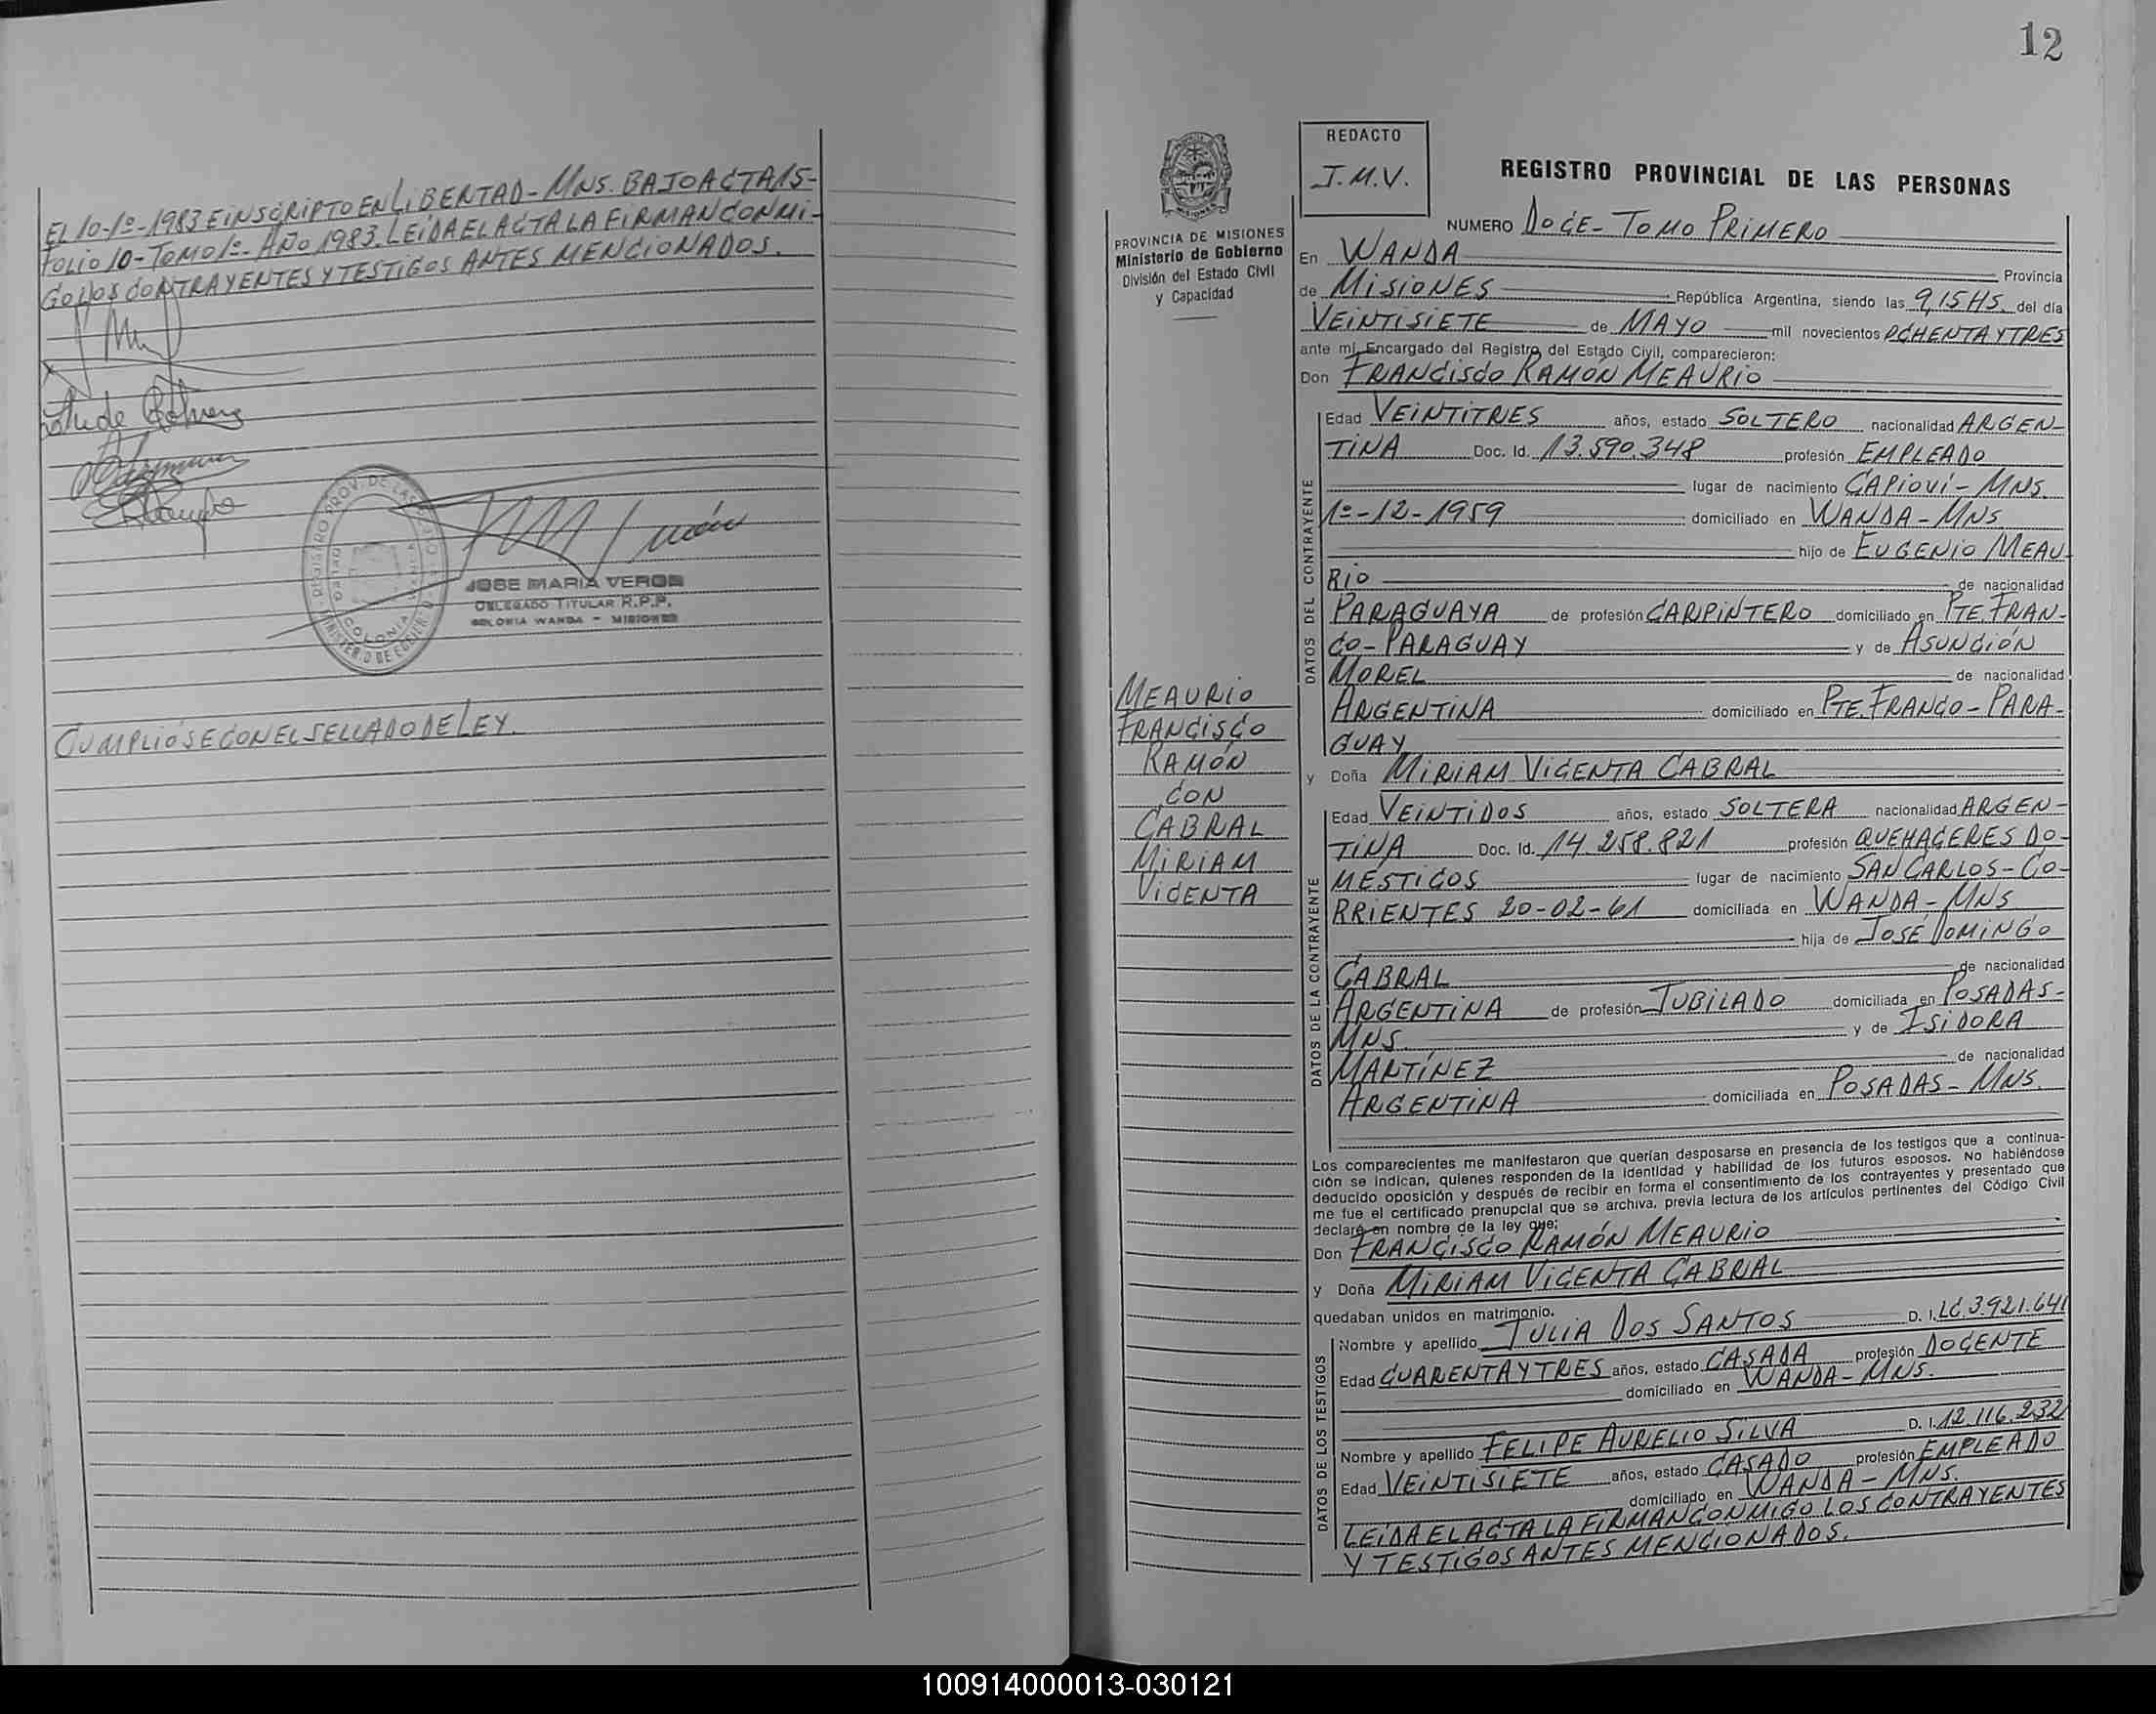 EL 10-1º-1983 E INSCRIPTO EN LIBERTAD - MNS. BAJO ACTA 15-
FOLIO 10 - TOMO 1º - AÑO 1983. LEIDA EL ACTA LA FIRMAN CONMI-
GO LOS CONTRAYENTES Y TESTIGOS ANTES MENCIONADOS.
JOSE MARIA VERON
DELEGADO TITULAR R.P.P.
COLONIA WANDA - MISIONES
CUMPLIÓSE CON EL SELLADO DE LEY.
12
PROVINCIA DE MISIONES
Ministerio de Gobierno
División del Estado Civil
y Capacidad
MEAURIO
FRANCISCO
RAMÓN
CON
CABRAL
MIRIAM
VICENTA
REDACTO
J.M.V.
REGISTRO PROVINCIAL DE LAS PERSONAS
NUMERO DOCE - TOMO PRIMERO
En WANDA Provincia
de MISIONES República Argentina, siendo las 9,15 HS. del día
VEINTISIETE de MAYO mil novecientos OCHENTA Y TRES
ante mí, Encargado del Registro del Estado Civil, comparecieron:
Don FRANCISCO RAMÓN MEAURIO
DATOS DEL CONTRAYENTE
Edad VEINTITRES años, estado SOLTERO nacionalidad ARGEN-
TINA Doc. Id. 13.590.348 profesión EMPLEADO
lugar de nacimiento CAPIOVÍ - MNS.
1º-12-1959 domiciliado en WANDA - MNS
hijo de EUGENIO MEAU-
RIO de nacionalidad
PARAGUAYA de profesión CARPINTERO domiciliado en PTE. FRAN-
CO - PARAGUAY y de ASUNCIÓN
MOREL de nacionalidad
ARGENTINA domiciliado en PTE. FRANCO - PARA-
GUAY
y Doña MIRIAM VICENTA CABRAL
DATOS DE LA CONTRAYENTE
Edad VEINTIDOS años, estado SOLTERA nacionalidad ARGEN-
TINA Doc. Id. 14.258.821 profesión QUEHACERES DO-
MESTICOS lugar de nacimiento SAN CARLOS - CO-
RRIENTES 20-02-61 domiciliada en WANDA - MNS
hija de JOSÉ DOMINGO
CABRAL de nacionalidad
ARGENTINA de profesión JUBILADO domiciliada en POSADAS-
MNS. y de ISIDORA
MARTÍNEZ de nacionalidad
ARGENTINA domiciliada en POSADAS - MNS.
Los comparecientes me manifestaron que querían desposarse en presencia de los testigos que a continua-
ción se indican, quienes responden de la identidad y habilidad de los futuros esposos. No habiéndose
deducido oposición y después de recibir en forma el consentimiento de los contrayentes y presentado que
me fue el certificado prenupcial que se archiva, previa lectura de los artículos pertinentes del Código Civil
declaré en nombre de la ley que:
Don FRANCISCO RAMÓN MEAURIO
y Doña MIRIAM VICENTA CABRAL
quedaban unidos en matrimonio.
DATOS DE LOS TESTIGOS
Nombre y apellido JULIA DOS SANTOS D. I. LC. 3.921.641
Edad CUARENTA Y TRES años, estado CASADA profesión DOCENTE
domiciliado en WANDA - MNS.
Nombre y apellido FELIPE AURELIO SILVA D. I. 12.116.232
Edad VEINTISIETE años, estado CASADO profesión EMPLEADO
domiciliado en WANDA - MNS.
LEÍDA EL ACTA LA FIRMAN CONMIGO LOS CONTRAYENTES
Y TESTIGOS ANTES MENCIONADOS.
100914000013-030121